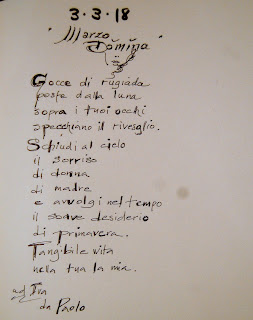 3.3.18
"Marzo
Domina"
Gocce di rugiada
poste dalla luna
sopra i tuoi occhi
specchiano il risveglio.
Schiudi al cielo
il sorriso
di donna
di madre
e avvolgi nel tempo
il soave desiderio
di primavera.
Tangibile vita
nella tua la mia.
ad Iva
da Paolo